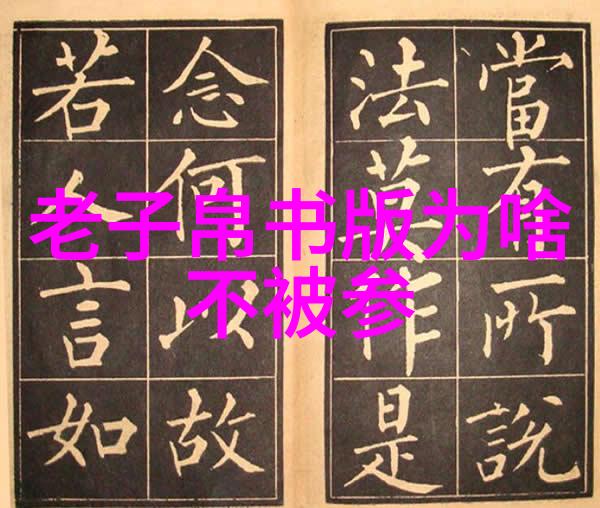 老子帛书版为啥
不被参
當有所說
法莫作是
念何以故
若人言如